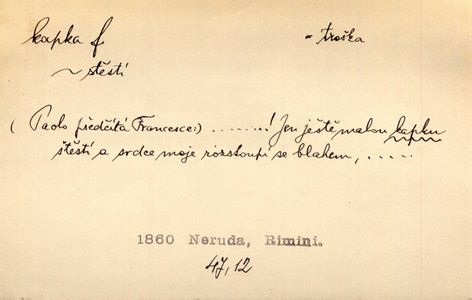 kapka f = troška
~ štěstí
( Paolo předčítá Francesce:) .......! Jen ještě malou kapku
štěstí a srdce moje rozstoupí se blahem, .....
1860 Neruda, Rimini.
47, 12